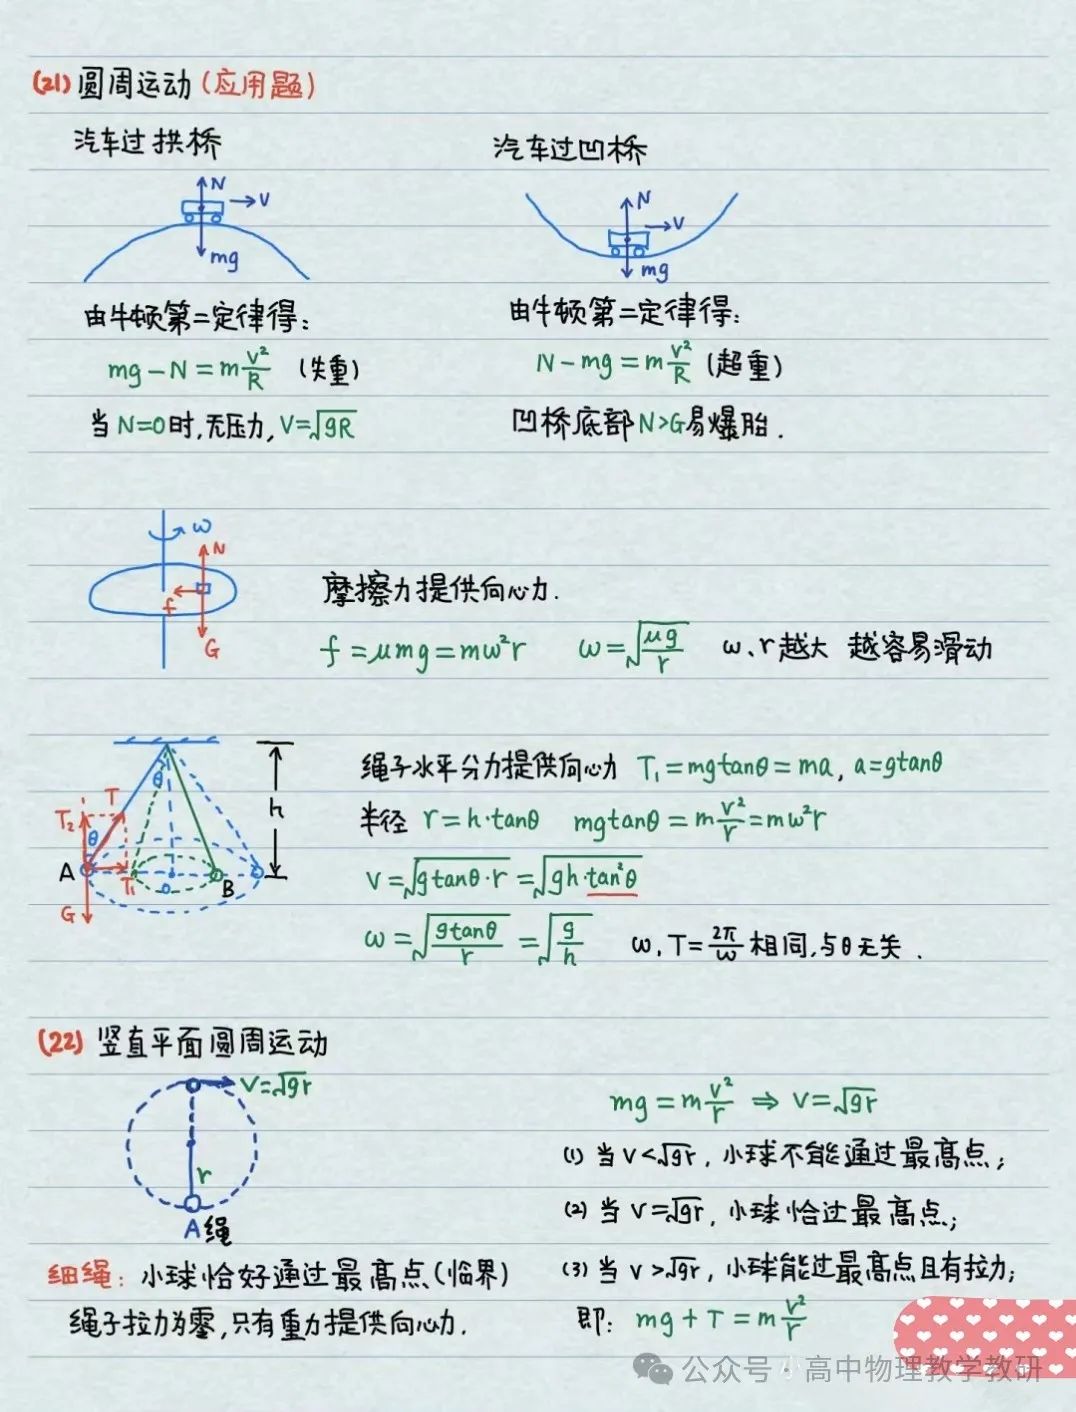 (21) 圆周运动 (应用题)
汽车过拱桥
N
V
mg
由牛顿第二定律得:
mg - N = m v²/R (失重)
当 N=0时,无压力, V=√gR
汽车过凹桥
N
V
mg
由牛顿第二定律得:
N - mg = m v²/R (超重)
凹桥底部 N>G 易爆胎.
ω
N
f
G
摩擦力提供向心力.
f = μmg = mω²r ω=√(μg/r) ω、r越大 越容易滑动
θ
h
T
T₂
θ
A
T₁
o
B
G
绳子水平分力提供向心力 T₁ = mgtanθ = ma, a=gtanθ
半径 r = h·tanθ mgtanθ = m v²/r = mω²r
V = √(gtanθ·r) = √(gh·tan²θ)
ω = √(gtanθ/r) = √(g/h) ω, T = 2π/ω 相同,与θ无关.
(22) 竖直平面圆周运动
V=√gr
r
A 绳
细绳: 小球恰好通过最高点(临界)
绳子拉力为零,只有重力提供向心力.
mg = m v²/r ⇒ V=√gr
(1) 当 V<√gr, 小球不能通过最高点;
(2) 当 V=√gr, 小球恰过最高点;
(3) 当 V>√gr, 小球能过最高点且有拉力;
即: mg + T = m v²/r
公众号·小高中物理教学教研